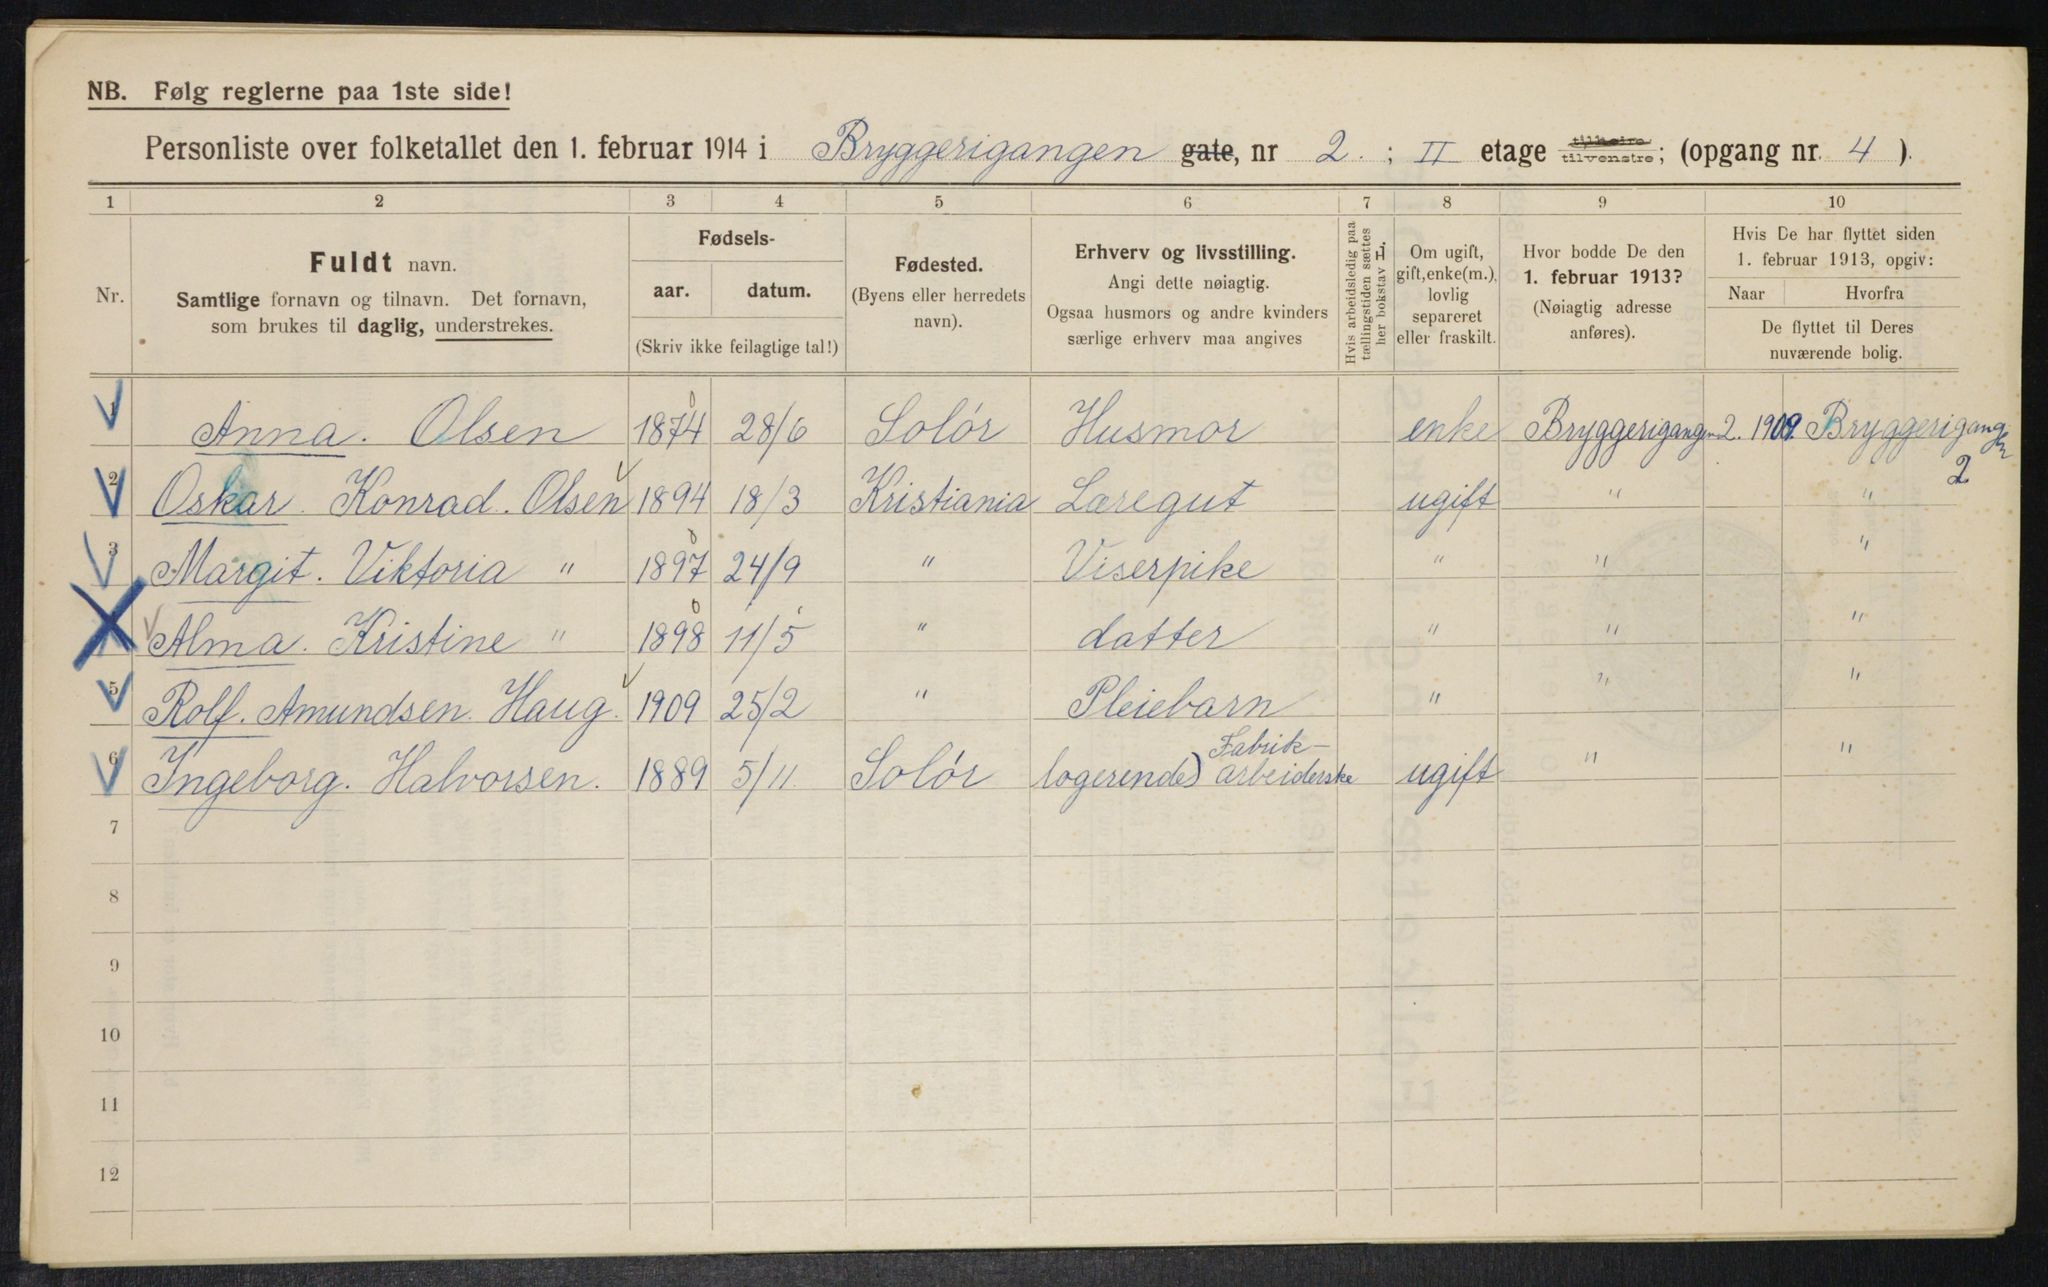 NB. Følg reglerne paa 1ste side!
Personliste over folketallet den 1. februar 1914 i Bryggerigangen gate, nr 2. ; II etage tilhøire tilvenstre; (opgang nr. 4 ).
1 2 3 4 5 6 7 8 9 10
Nr.
Fuldt navn.
Samtlige fornavn og tilnavn. Det fornavn,
som brukes til daglig, understrekes.
Fødsels-
aar. datum.
(Skriv ikke feilagtige tal!)
Fødested.
(Byens eller herredets
navn).
Erhverv og livsstilling.
Angi dette nøiagtig.
Ogsaa husmors og andre kvinders
særlige erhverv maa angives
Hvis arbeidsledig paa
tællingstiden sættes
her bokstav L.
Om ugift,
gift, enke(m.),
lovlig
separeret
eller fraskilt.
Hvor bodde De den
1. februar 1913?
(Nøiagtig adresse
anføres).
Hvis De har flyttet siden
1. februar 1913, opgiv:
Naar Hvorfra
De flyttet til Deres
nuværende bolig.
1 Anna. Olsen 1874 28/6 Solør Husmor enke Bryggerigangen 2. 1909. Bryggerigangen
2
2 Oskar. Konrad. Olsen 1894 18/3 Kristiania Læregut ugift " "
3 Margit. Viktoria " 1897 24/9 " Viserpike " " "
Alma. Kristine " 1898 11/5 " datter " " "
5 Rolf. Amundsen. Haug. 1909 25/2 " Pleiebarn " " "
6 Ingeborg. Halvorsen. 1889 5/11 Solør logerende) Fabrik-
arbeiderske ugift " "
7
8
9
10
11
12